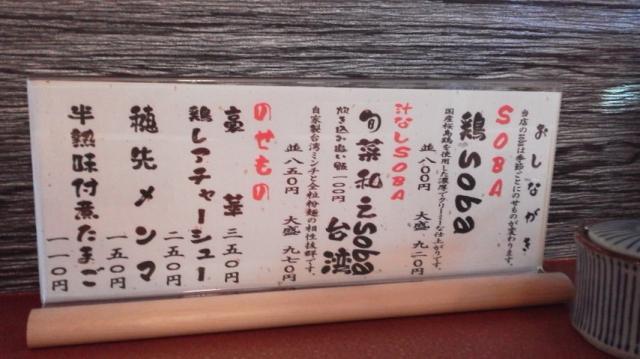 おしながき
当店のsobaは季節ごとにのせものが変わります。
SOBA
鶏soba
国産桜島鶏を使用した濃厚でクリーミーな仕上がりです。
並 八〇〇円 大盛 九二〇円
汁なしSOBA
旬菜和えsoba 台湾
炊き込み追い飯 一〇〇円
自家製台湾ミンチと全粒粉麺の相性抜群です。
並 八五〇円 大盛 九七〇円
のせもの
豪華 三五〇円
鶏レアチャーシュー 二五〇円
穂先メンマ 一五〇円
半熟味付煮たまご 一一〇円